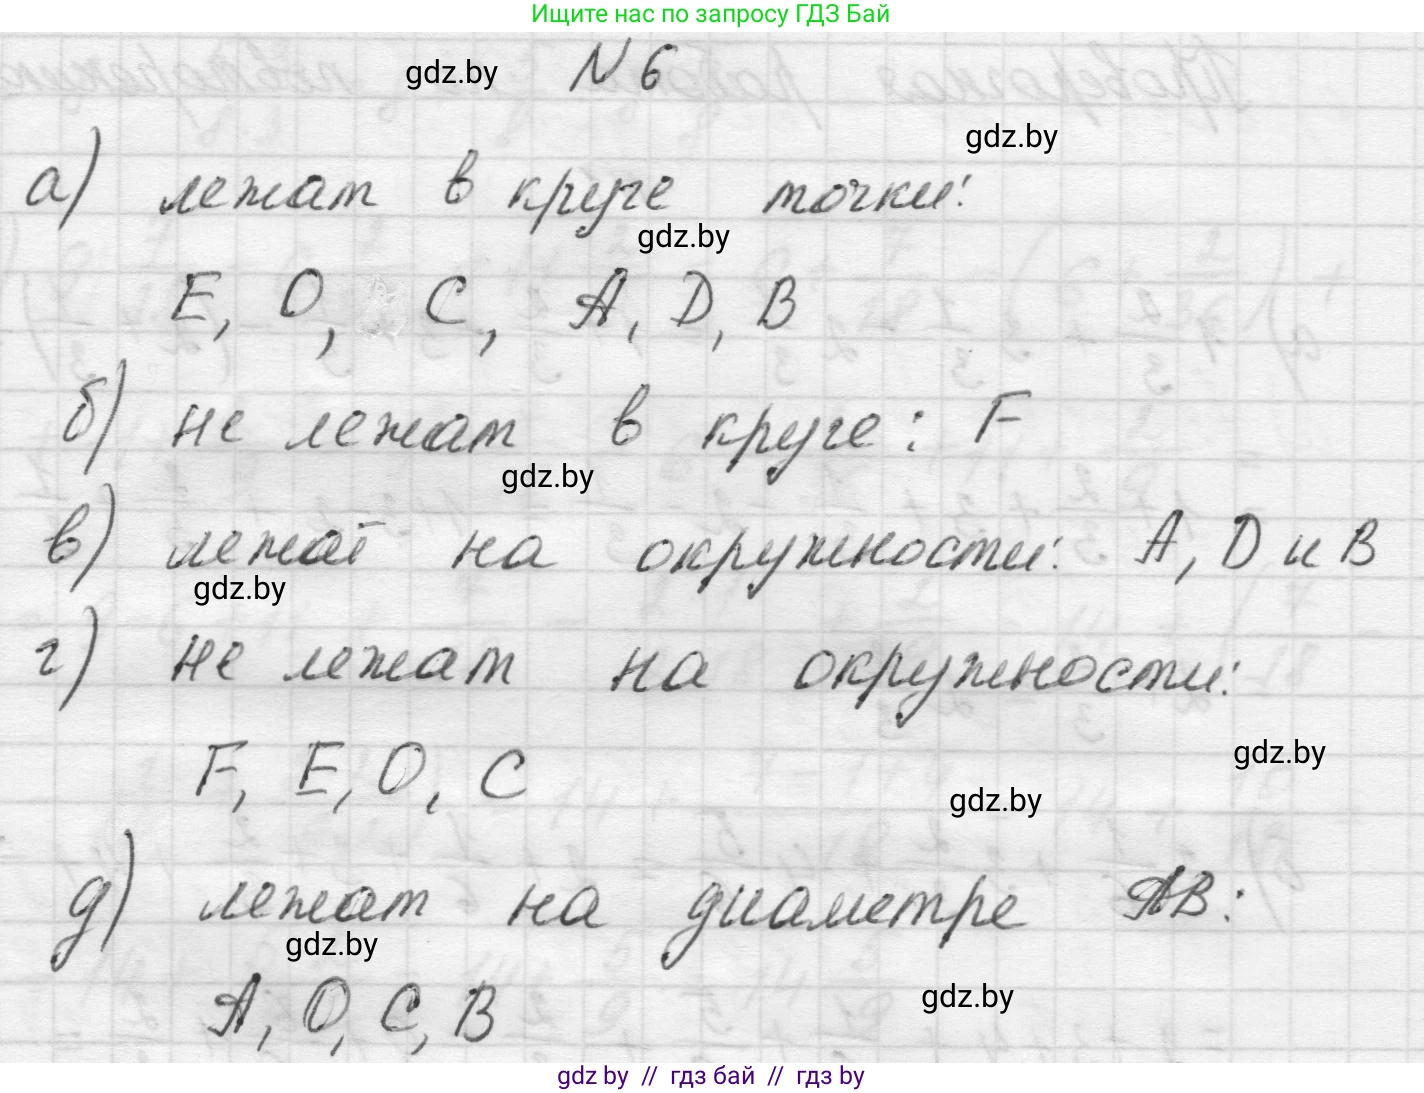 Ищите нас по запросу ГДЗ Бай
gdz.by N 6
gdz.by
а) лежат в круге точки:
gdz.by
E, O, C, A, D, B
б) не лежат в круге: F
gdz.by
в) лежат на окружности: A, D и B
gdz.by
г) не лежат на окружности:
gdz.by
F, E, O, C
gdz.by
д) лежат на диаметре AB:
gdz.by
A, O, C, B
gdz.by
gdz by // гдз бай // гдз by